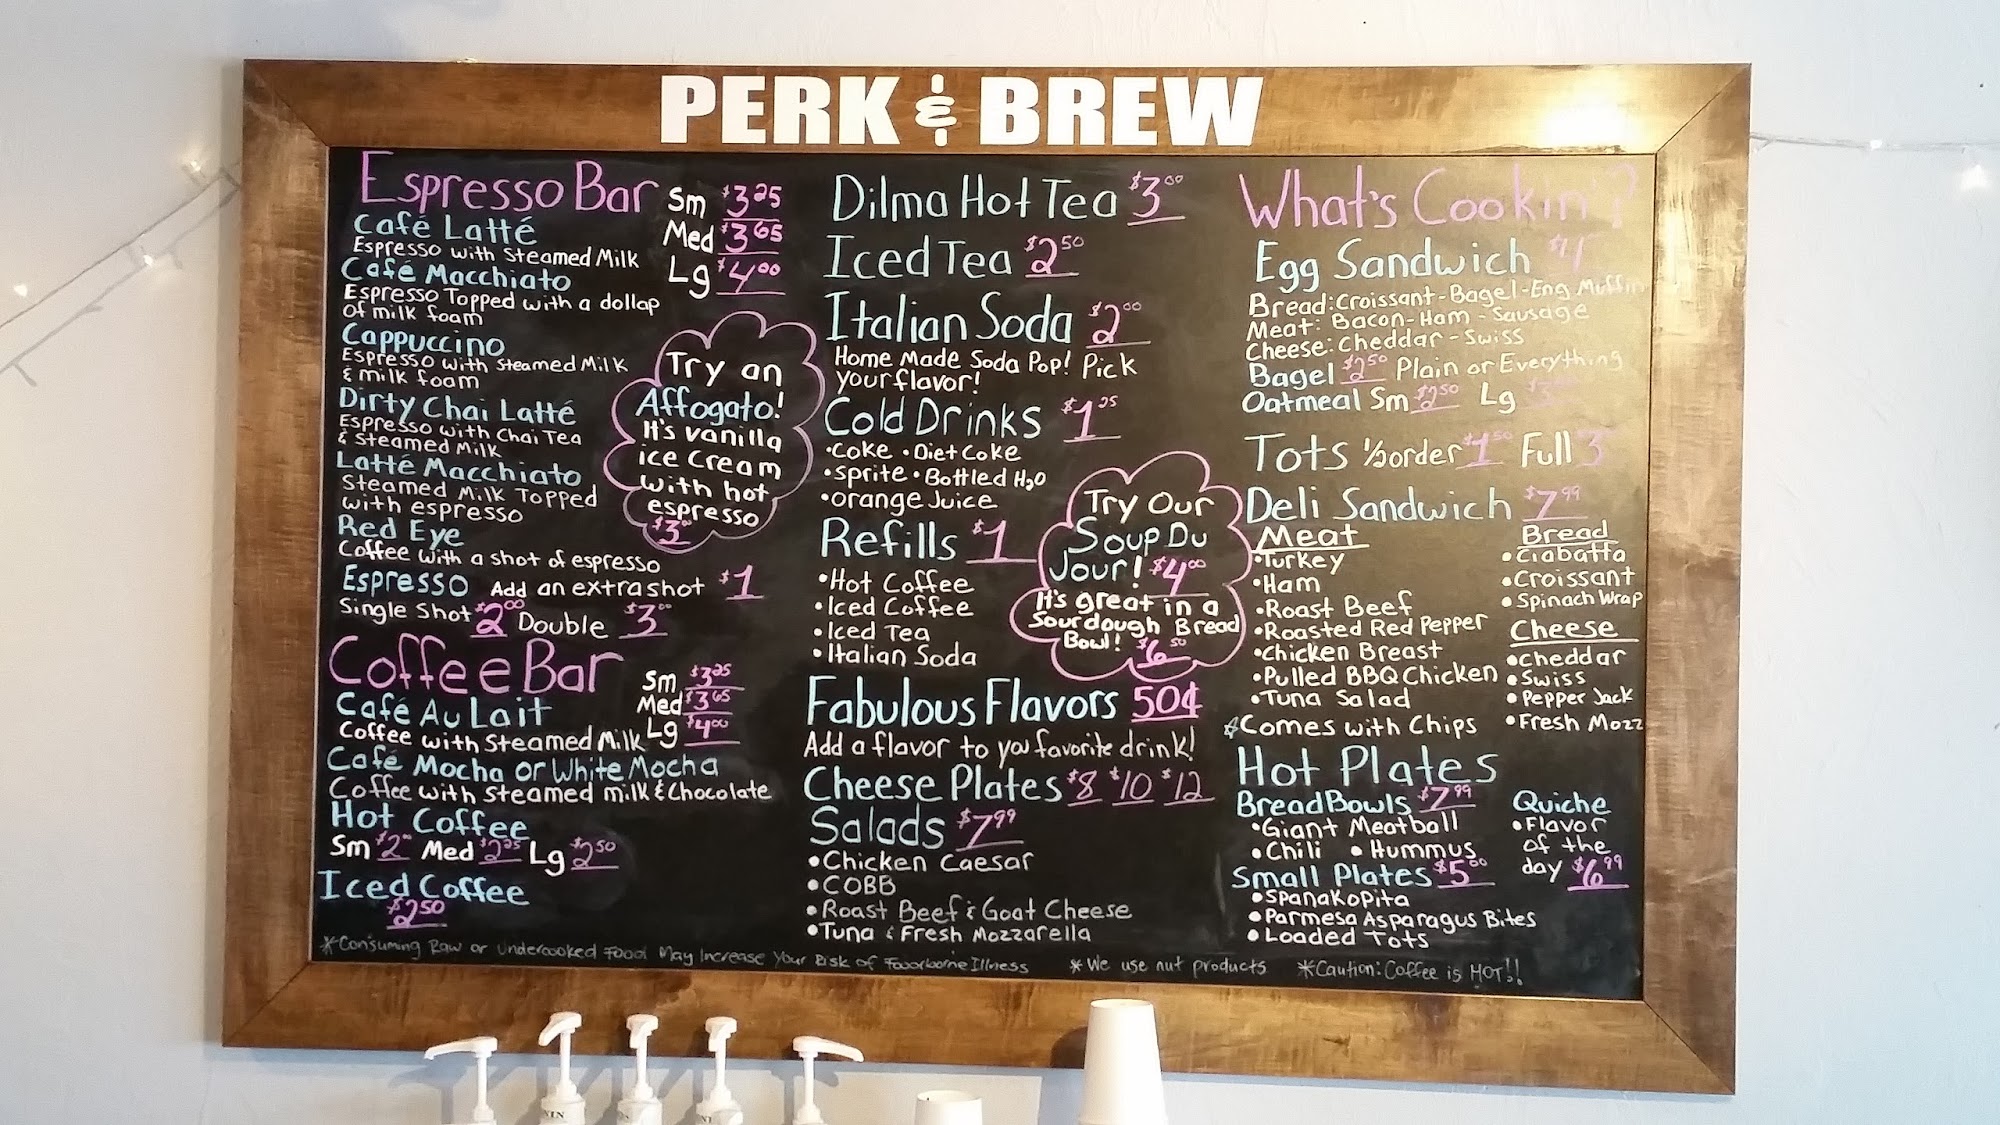 PERK & BREW
Espresso Bar
Sm $3.25
Med $3.65
Lg $4.00
Café Latté
Espresso with Steamed Milk
Café Macchiato
Espresso Topped with a dollap
of milk foam
Cappuccino
Espresso with Steamed Milk
& milk foam
Dirty Chai Latté
Espresso with Chai Tea
& Steamed Milk
Latté Macchiato
Steamed Milk Topped
with espresso
Red Eye
Coffee with a shot of espresso
Espresso Add an extra shot $1
Single Shot $2.00 Double $3.00
Try an
Affogato!
It's vanilla
ice cream
with hot
espresso
$3.00
Coffee Bar
Sm $3.25
Med $3.65
Lg $4.00
Café Au Lait
Coffee with Steamed Milk
Café Mocha or White Mocha
Coffee with Steamed milk & Chocolate
Hot Coffee
Sm $2.00 Med $2.25 Lg $2.50
Iced Coffee
$2.50
Dilma Hot Tea $3.00
Iced Tea $2.50
Italian Soda $2.00
Home Made Soda Pop! Pick
your flavor!
Cold Drinks $1.25
•Coke •Diet Coke
•Sprite •Bottled H2O
•Orange Juice
Refills $1
•Hot Coffee
•Iced Coffee
•Iced Tea
•Italian Soda
Try Our
Soup Du
Jour! $4.00
It's great in a
Sourdough Bread
Bowl! $6.50
Fabulous Flavors 50¢
Add a flavor to you favorite drink!
Cheese Plates $8 $10 $12
Salads $7.99
•Chicken Caesar
•COBB
•Roast Beef & Goat Cheese
•Tuna & Fresh Mozzarella
What's Cookin?
Egg Sandwich $4
Bread: Croissant-Bagel-Eng Muffin
Meat: Bacon-Ham-Sausage
Cheese: Cheddar-Swiss
Bagel $2.50 Plain or Everything
Oatmeal Sm $2.50 Lg
Tots 1/2 order $1.50 Full $3
Deli Sandwich $7.99
Meat
•Turkey
•Ham
•Roast Beef
•Roasted Red Pepper
•Chicken Breast
•Pulled BBQ Chicken
•Tuna Salad
*Comes with Chips
Bread
•Ciabatta
•Croissant
•Spinach Wrap
Cheese
•Cheddar
•Swiss
•Pepper Jack
•Fresh Mozz
Hot Plates
Bread Bowls $7.99
•Giant Meatball
•Chili •Hummus
Small Plates $5.00
•Spanakopita
•Parmesa Asparagus Bites
•Loaded Tots
Quiche
•Flavor
of the
day $6.99
*Consuming Raw or Undercooked Food May Increase Your Risk of Foodborne Illness *We use nut products *Caution: Coffee is HOT!!